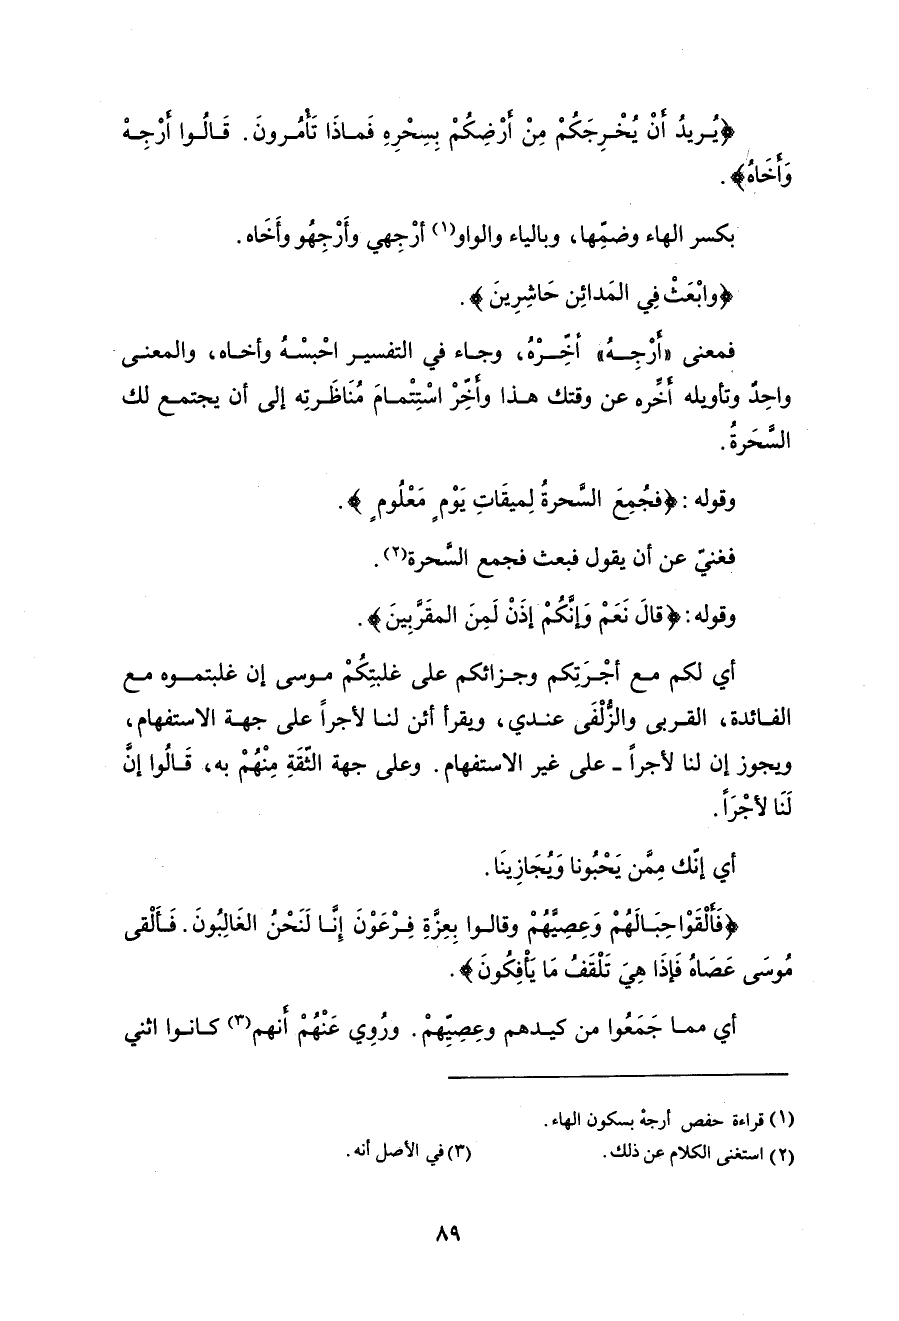 ﴿يُـرِيدُ أَنْ يُخْـرِجَكُمْ مِنْ أَرْضِكُمْ بِسِحْرِهِ فَمـاذَا تَأْمُـرونَ. قَـالُـوا أَرْجِـهْ
وَأَخَاهُ﴾.
بكسر الهاء وضمِّها، وبالياء والواو(١) أرْجِهي وأَرْجِهُو وأَخَاه.
﴿وابْعَثْ فِي المَدائِن حَاشِرِينَ﴾.
فمعنى «أَرْجِــهُ» أخِّــرْهُ، وجـاء في التفسيـر احْبسْـهُ وأخـاه، والمعنـى
واحِدٌ وتأويله أَخِّره عن وقتك هـذا وأَخِّرْ اسْتِتْمـامَ مُنَاظَـرتِه إلى أن يجتمـع لك
السَّحَرةُ.
وقوله: ﴿فجُمِعَ السَّحرةُ لِميقَاتِ يَوْمٍ مَعْلُومٍ﴾.
فغنيّ عن أن يقول فبعث فجمع السَّحرة(٢).
وقوله: ﴿قالَ نَعَمْ وَإنَّكُمْ إذَنْ لَمِنَ المقَرَّبِينَ﴾.
أي لكم مـع أجْـرَتِكم وجـزائكم على غلبتِكُمْ مـوسى إن غلبتمـوه مـع
الفـائدة، القـربى والزُّلْفَى عنـدي، ويقرأ أئن لنـا لأجراً على جهـة الاستفهام،
ويجوز إن لنا لأجراً ـ على غير الاستفهام. وعلى جهة الثّقَةِ مِنْهُمْ به، قَـالُوا إنَّ
لَنَا لأجْرَاً.
أي إنّك مِمَّن يَحْبُونا وَيُجَازِينَا.
﴿فَأَلْقَوْا حِبَـالَهُمْ وَعِصِيَّهُمْ وقالـوا بِعِزَّةِ فِـرْعَوْنَ إِنَّـا لَنَحْنُ الغَالِبُونَ. فَـأَلْقى
مُوسَى عَصَاهُ فَإذَا هِيَ تَلْقَفُ مَا يَأْفِكُونَ﴾.
أي ممـا جَمَعُوا من كيـدهم وعِصِيِّهمْ. ورُوِي عَنْهُمْ أنهم(٣) كـانـوا اثني
(١) قراءة حفص أرجهْ بسكون الهاء.
(٢) استغنى الكلام عن ذلك. (٣) في الأصل أنه.
٨٩